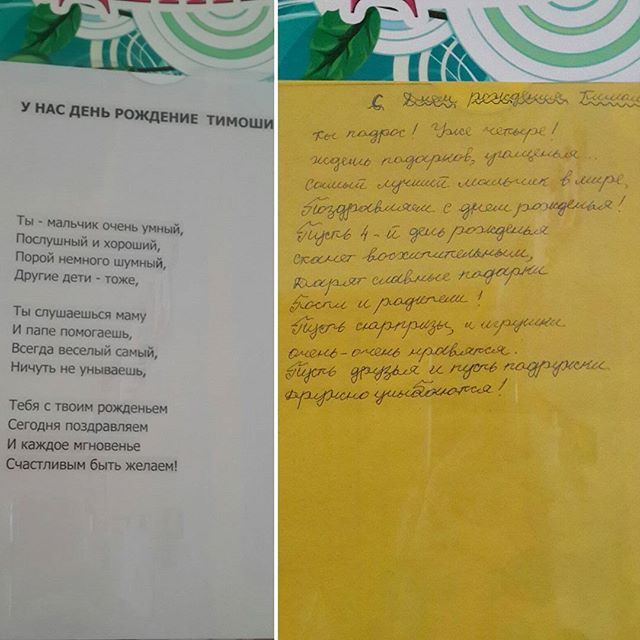 У НАС ДЕНЬ РОЖДЕНИЕ ТИМОШИ
Ты - мальчик очень умный,
Послушный и хороший,
Порой немного шумный,
Другие дети - тоже,
Ты слушаешься маму
И папе помогаешь,
Всегда веселый самый,
Ничуть не унываешь,
Тебя с твоим рожденьем
Сегодня поздравляем
И каждое мгновенье
Счастливым быть желаем!
С Днем рождения
Ты подрос! Уже четыре!
Ждешь подарков, угощенья...
Самый лучший мальчик в мире,
Поздравляем с днем рожденья!
Пусть 4-й день рожденья
станет восхитительным,
Дарят славные подарки
Гости и родители!
Пусть сюрпризы и игрушки
очень-очень нравятся.
Пусть друзья и пусть подружки
дружно улыбаются!